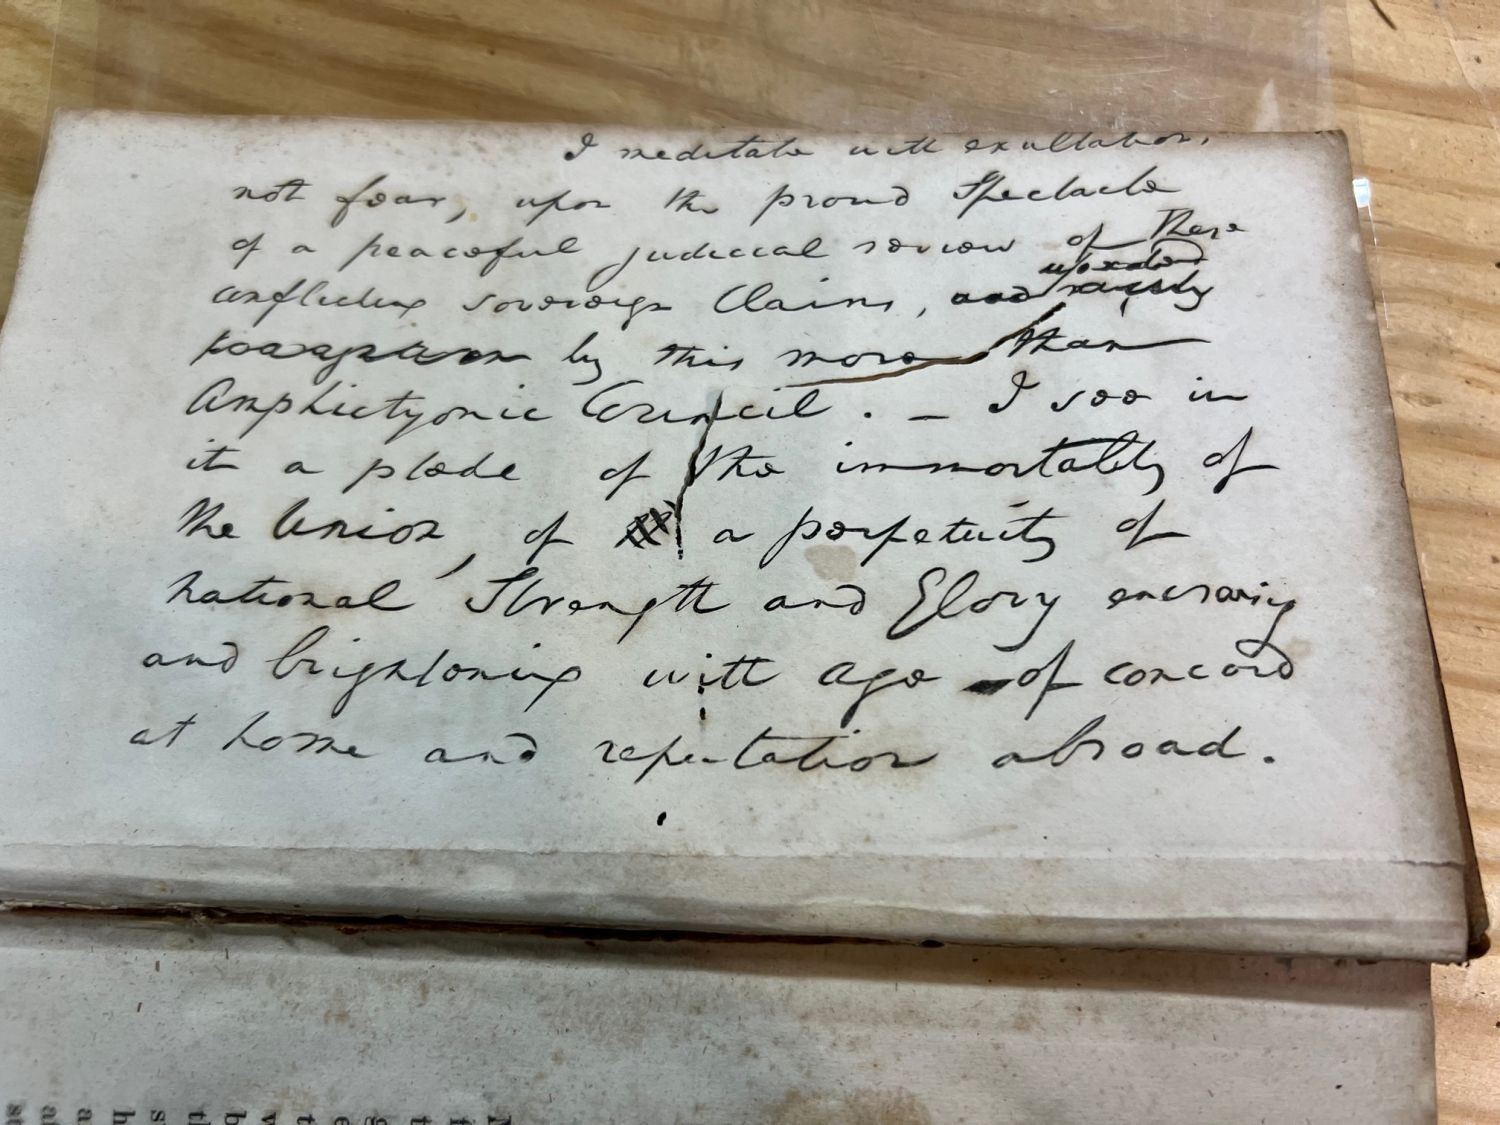 I meditate with exultation,
not fear, upon the proud Spectacle
of a peaceful judicial review of these
conflicting sovereign Claims, and
by this more than
Amphictyonic Council. _ I see in
it a plede of the immortality of
the Union, of a perpetuity of
national Strength and Glory encrasing
and brightening with age of concord
at home and reputation abroad.